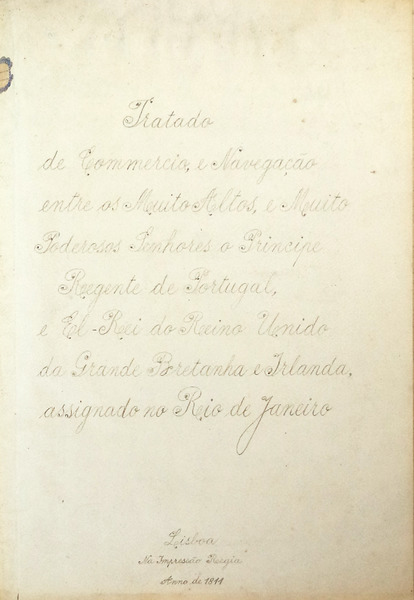 Tratado
de Commercio, e Navegação
entre os Muito Altos, e Muito
Poderosos Senhores o Principe
Regente de Portugal,
e El-Rei do Reino Unido
da Grande Bretanha e Irlanda,
assignado no Rio de Janeiro
Lisboa
Na Impressão Regia
Anno de 1811